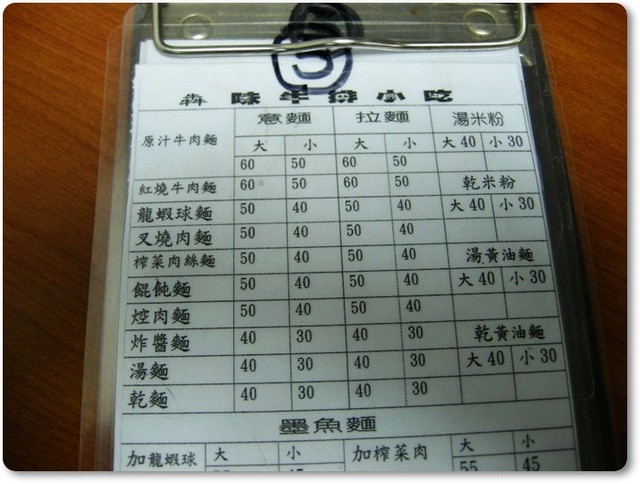 犇 味牛排小吃
意麵 拉麵 湯米粉
原汁牛肉麵 大 小 大 小 大 40 小 30
60 50 60 50
紅燒牛肉麵 60 50 60 50 乾米粉
龍蝦球麵 50 40 50 40 大 40 小 30
叉燒肉麵 50 40 50 40
榨菜肉絲麵 50 40 50 40 湯黃油麵
餛飩麵 50 40 50 40 大 40 小 30
焢肉麵 50 40 50 40
炸醬麵 40 30 40 30 乾黃油麵
湯麵 40 30 40 30 大 40 小 30
乾麵 40 30 40 30
墨魚麵
加龍蝦球 大 小 加榨菜肉 大 小
55 45 55 45